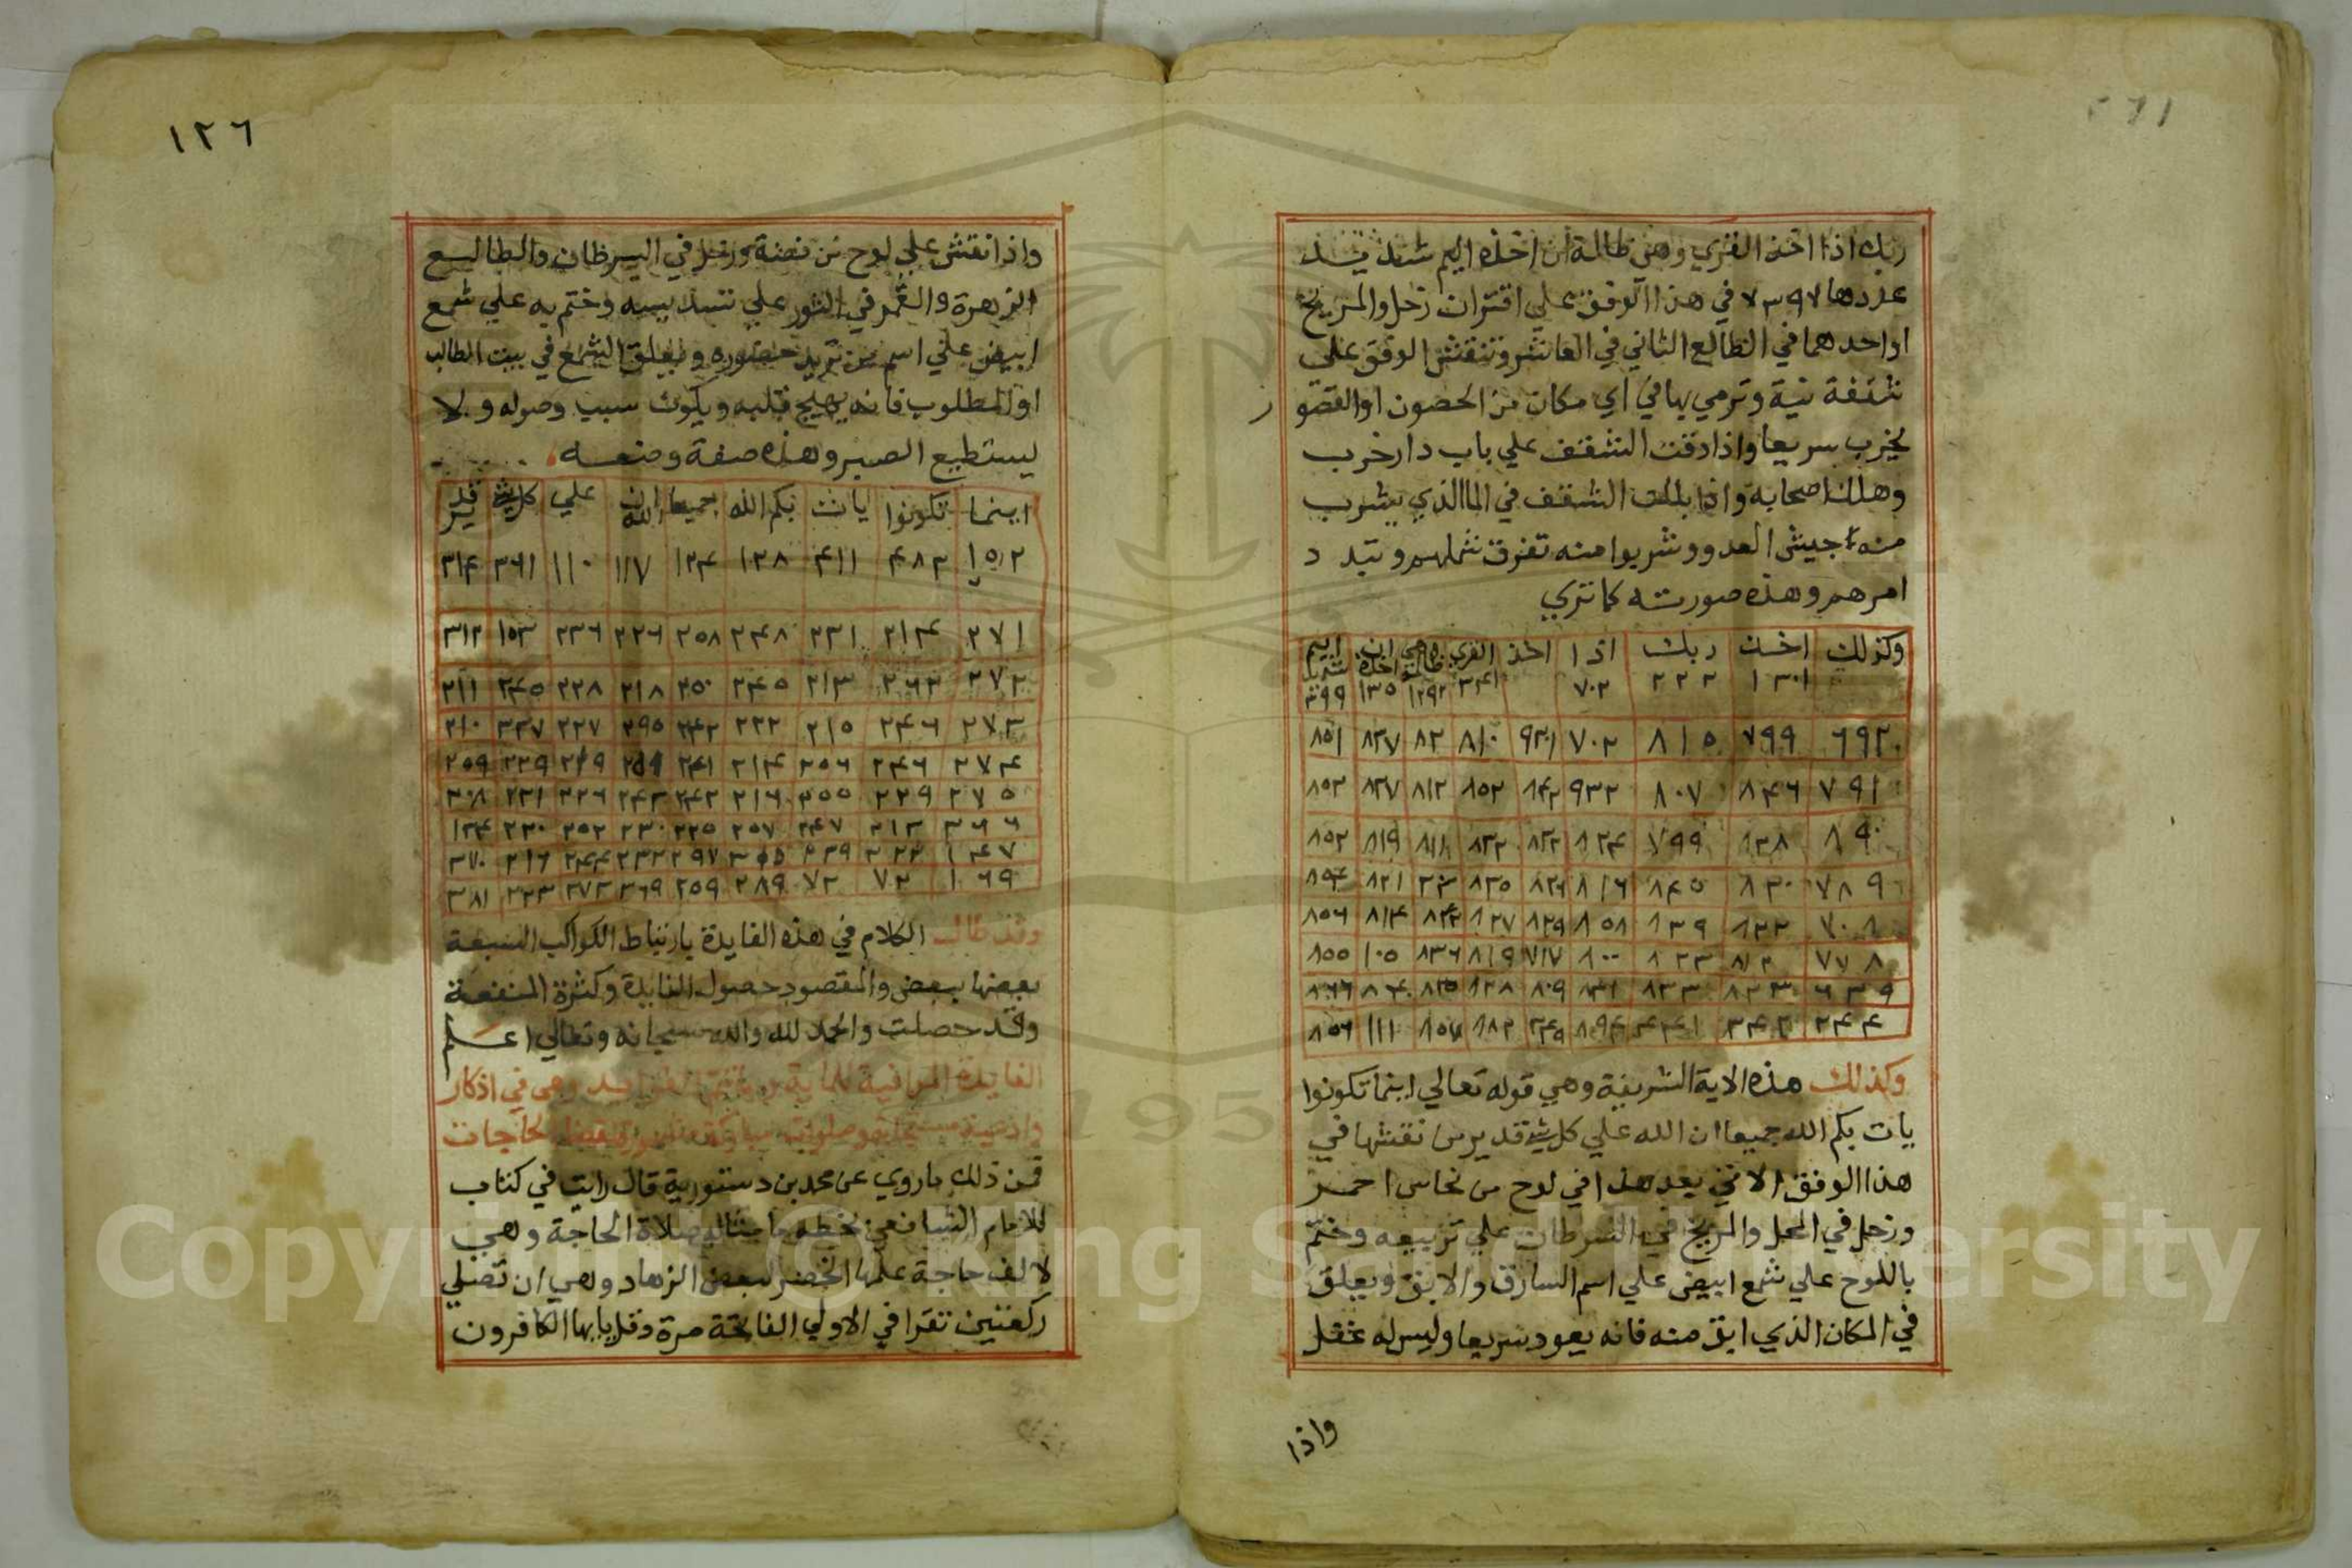 ربك اذا اخذ القري وهي ظالمة ان اخذه اليم شديد
عددها ٧٣٩٧ في هذا الوفق علي اقتران زحل والمريخ
او احدهما في الطالع الثاني في العاشر وتنقش الوفق علي
شقفة نية وترمي بها في اي مكان من الحصون او القصو
ر
يخرب سريعا واذا دقت الشقف علي باب دار خرب
وهلك اصحابه واذا بللت الشقف في الما الذي يشرب
منه جيش العدو وشربوا منه تفرق شملهم وتبدد
امرهم وهذه صورته كما تري
وكذلك اخذ ربك اذا اخذ القري وهي ظالمة ان اخذه اليم شديد
١٣٠١ ٢٢٢ ٧٠٢ ٣٤١ ١٢٩٢ ١٣٥ ٣٩٩
٦٩٢ ٧٩٩ ٨١٥ ٧٠٢ ٩٣١ ٨١٠ ٨٢ ٨٣٧ ٨٥١
٧٩١ ٨٤٦ ٨٠٧ ٩٣٢ ٨٤٢ ٨٥٢ ٨١٢ ٨٢٧ ٨٥٢
٨٩٠ ٨٣٨ ٧٩٩ ٨٢٤ ٨٢٢ ٨٣٢ ٨١١ ٨١٩ ٨٥٢
٧٨٩ ٨٣٠ ٨٤٥ ٨١٦ ٨٢٦ ٨٣٥ ٢٣ ٨٢١ ٨٥٤
٧٠٨ ٨٢٢ ٨٣٩ ٨٥٨ ٨٢٩ ٨٢٧ ٨٤٢ ٨١٤ ٨٥٦
٧٧٨ ٨١٢ ٨٢٣ ٨٠٠ ٧١٧ ٨١٩ ٨٣٦ ١٠٥ ٨٥٥
٦٣٩ ٨٢٣ ٨٣٣ ٨٣١ ٨٠٩ ٨٢٨ ٨٢٥ ٨٤٠ ٨٦٦
٢٤٤ ٣٤٢ ٤٤١ ٨٩٤ ٢٤٩ ٨٨٢ ٨٥٧ ١١١ ٨٥٦
وكذلك هذه الاية الشريفة وهي قوله تعالي اينما تكونوا
يات بكم الله جميعا ان الله علي كل شي قدير من نقشها في
هذا الوفق الاتي بعد هذا في لوح من نحاس احمر
وزحل في الحمل والمريخ في السرطان علي تربيعه وختم
باللوح علي شمع ابيض علي اسم السارق والابق ويعلق
في المكان الذي ابق منه فانه يعود سريعا وليس له عقل
واذا
١٢٦
واذا نقش علي لوح من فضة وزحل في السرطان والطالع
الزهرة والقمر في الثور علي تسديسه وختم به علي شمع
ابيض علي اسم من تريد حضوره ويعلق الشمع في بيت الطالب
او المطلوب فانه يهيج قلبه ويكون سبب وصوله ولا
يستطيع الصبر وهذه صفة وضعه
اينما تكونوا يات بكم الله جميعا ان الله علي كل شي قدير
١٥٢ ٤٨٣ ٤١١ ١٣٨ ١٢٤ ١١٧ ١١٠ ٣٦١ ٣١٤
٢٧١ ٢١٤ ٢٣١ ٢٤٨ ٢٥٨ ٢٢٦ ٢٣٦ ١٥٣ ٣١٢
٢٧٢ ٢٦٣ ٢١٣ ٢٤٥ ٢٥٠ ٢١٨ ٢٢٨ ٢٤٥ ٢١١
٢٧٣ ٢٤٦ ٢١٥ ٢٢٢ ٢٤٢ ٢٩٥ ٢٢٧ ٢٣٧ ٢١٠
٢٧٤ ٢٤٦ ٢٥٦ ٢١٤ ٢٤١ ٢٥٩ ٢١٩ ٢٢٩ ٢٥٩
٢٧٥ ٢٢٩ ٢٥٥ ٢١٦ ٢٤٢ ٢٤٣ ٢٢٦ ٢٢١ ٣٠٨
٣٦٦ ٢١٣ ٢٤٧ ٢٥٧ ٢٢٥ ٢٣٠ ٢٥٢ ٢٣٠ ١٢٤
١٤٧ ٢٢٣ ٢٣٩ ٢٥٥ ٢٩٧ ٢٣٢ ٢٤٤ ٢١٦ ٣٧٠
١٦٩ ٧٢ ٧٢ ٢٨٩ ٢٥٩ ٣٦٩ ٢٧٣ ٢٢٣ ٣٨١
وقد طال الكلام في هذه الفايدة بارتباط الكواكب السبعة
بعضها ببعض والمقصود حصول الفايدة وكثرة المنفعة
وقد حصلت والحمد لله والله سبحانه وتعالي اعلم
الفايدة الموافية للماية من الفوايد وهي في اذكار
وادعية وصلوات مباركة لقضا الحاجات
فمن ذلك ما روي عن محمد بن دستورية قال رايت في كتاب
للامام الشافعي بخطه ما مثاله صلاة الحاجة وهي
لالف حاجة علمها الخضر لبعض الزهاد وهي ان تصلي
ركعتين تقرا في الاولي الفاتحة مرة وقل يا ايها الكافرون
Copyright © King Saud University
1957